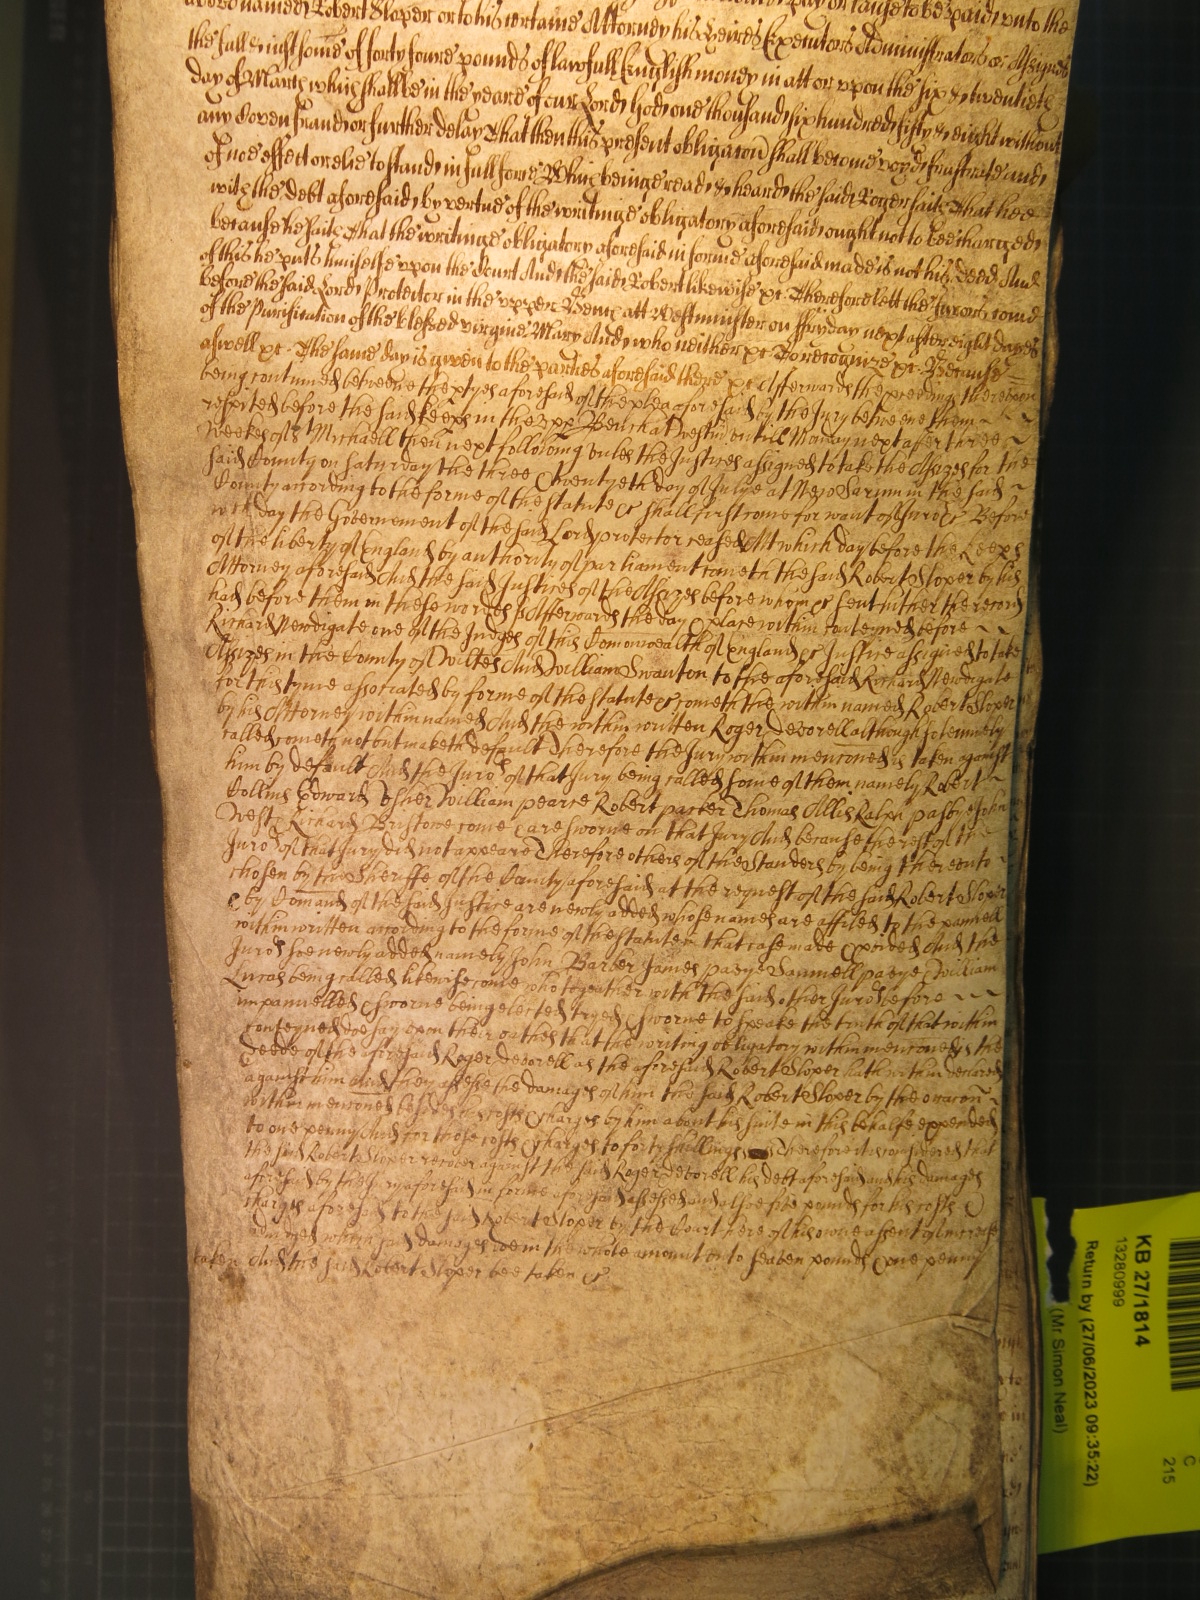 above named Robert Sloper or to his certaine Attorney his heires Executors Administrators or Assignes
the full & just some of forty foure pounds of lawfull English money in att or upon the six & twentieth
day of March which shall be in the yeare of our Lord God one thousand six hundred fifty & eight without
any Coven fraud or further delay That then this present obligacon shall become voyd frustrate and
of noe effect or else to stand in full force Which beinge read & heard the said Roger saith That hee
with the debt aforesaid by vertue of the writinge obligatory aforesaid ought not to bee charged
because he saith That the writinge obligatory aforesaid in forme aforesaid made is not his Deed And
of this he puts himselfe upon the Court And the said Robert likewise &c Therefore lett the Jurors come
before the said Lord Protector in the upper Bench att Westminster on ffryday next after eight dayes
of the Purification of the blessed virgine Mary And who neither &c To recognize &c Because
aswell &c The same day is given to the parties aforesaid there &c Afterwards the proceeding thereupon
being continued betweene the ptyes aforesaid of the plea aforesaid by the Jury betweene them
respited before the said Keeps in the upp Bench at Westm untill Munday next after three
weekes of St Michaell then next following unles the Justices assigned to take the Assizes for the
said County on Saturday the three & twentyeth day of Julye at New Sarum in the said
County according to the forme of the statute &c shall first come for want of Juro &c Before
wch day the Governement of the said Lord protector ceased At which day before the Keeps
of the liberty of England by authority of parliament cometh the said Robert Sloper by his
Attorney aforesaid And the said Justices of the Assizes before whom &c sent hither the record
had before them in these words Afterwards the day & place within conteyned before
Richard Newdigate one of the Judges of this Comonwealth of England &c Justice assigned to take
Assizes in the County of Wiltes And William Swanton to the aforesaid Richard Newdigate
for this tyme associated by forme of the statute &c cometh the within named Robert Sloper
by his Attorney within named And the within written Roger Deverell although solemnely
called cometh not but maketh default Therefore the Jury within mencioned is taken against
him by default And the Juro of that Jury being called some of them namely Robert
Collins Edward William pearce Robert parker Thomas Allis Ralph John
West & Richard Bristowe come & are sworne on that Jury And because the rest of the
Juro of that Jury did not appeare Therefore others of the Standers by being thereunto
chosen by the Sheriffe of the County aforesaid at the request of the said Robert Sloper
& by Comand of the said Justice are newly added whose names are affiled to the pannell
within written according to the forme of the statute in that case made & pvided And the
Juro soe newly added namely John Barber James Samuell William
Lucas being called likewise come who together with the said other Juro before
impannelled & sworne being elected tryed & sworne to speake the truth of that within
conteyned doe say upon their oathes that the writing obligatory within mencioned is the
Deede of the aforesaid Roger Deverell as the aforesaid Robert Sloper hath within declared
against him And they assesse the damages of him the said Robert Sloper by the occacon
within mencioned besides his costs & charges by him about his suite in this behalfe expended
to one penny And for those costs & charges to forty shillings Therefore it is considered that
the said Robert Sloper recover against the said Roger Deverell his debt aforesaid and his damages
aforesaid by the Jury aforesaid in forme aforesaid assessed and alsoe five pounds for his costs &
charges aforesaid to the said Robert Sloper by the Court here of his owne assent of increase
adjudged which said damages doe in the whole amount unto seaven pounds & one penny
And the said Robert Sloper bee taken &c
KB 27/1814
13280999
Return by (27/06/2023 09:35:22)
(Mr Simon Neal)
C
215